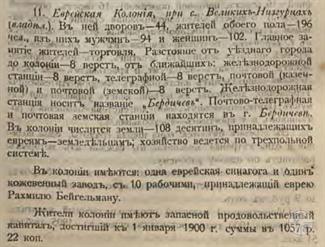 11. Еврейская Колонія, при с. Великихъ-Низгурцахъ
(владѣл.). Въ ней дворовъ—44, жителей обоего пола—196
чел., изъ нихъ мужчинъ—94 и женщинъ—102. Главное за-
нятіе жителей—торговля. Разстояніе отъ уѣзднаго города
до колоніи—8 верстъ, отъ ближайшихъ: желѣзнодорожной
станціи—8 верстъ, телеграфной—8 верстъ, почтовой (казен-
ной) и почтовой (земской)—8 верстъ. Желѣзнодорожная
станція носитъ названіе „Бердичевъ“. Почтово-телеграфная
и почтовая земская станціи находятся въ г. Бердичевѣ.
Въ колоніи числится земли—108 десятинъ, принадлежащихъ
евреямъ—земледѣльцамъ; хозяйство ведется по трехпольной
системѣ.
Въ колоніи имѣются: одна еврейская синагога и одинъ
кожевенный заводъ, съ 10 рабочими, принадлежащій еврею
Рахмилю Бейгельману.
Жители колоніи имѣютъ запасной продовольственный
капиталъ, достигшій къ 1 января 1900 г. суммы въ 1057 р.
22 коп.